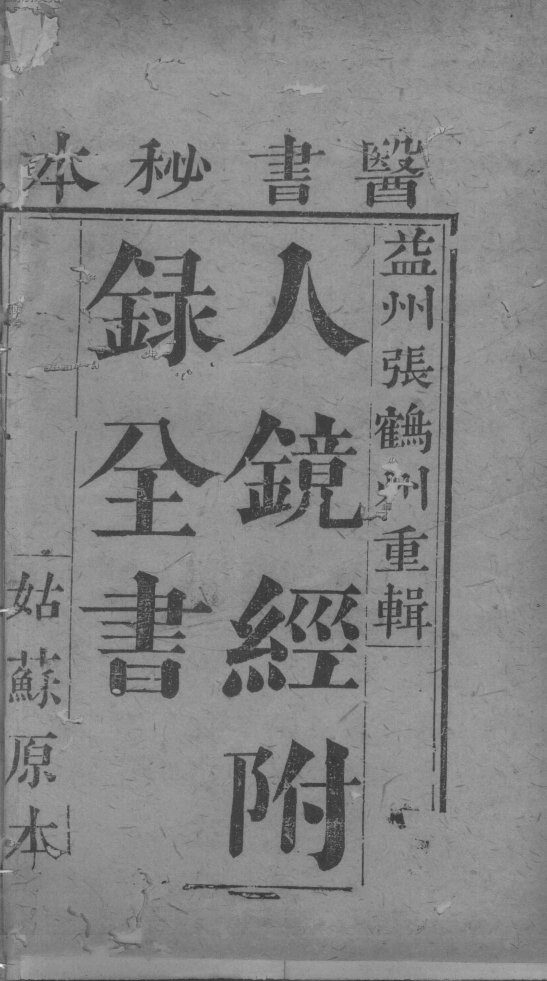 醫書秘本
益州張鶴州重輯
人鏡經附
録全書
姑蘇原本